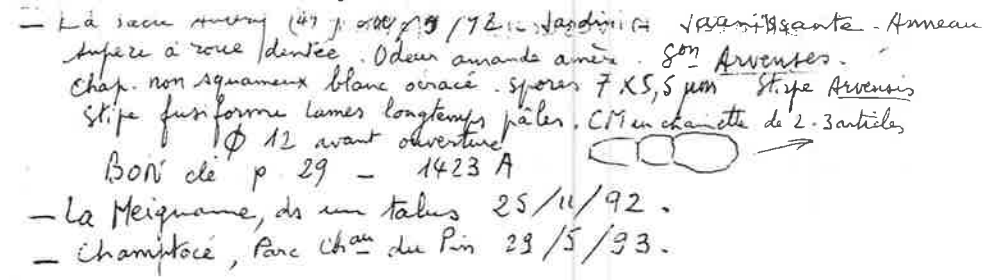 - La jaunissante - Anneau
supere à roue dentée. Odeur amande amère. gon Arvenses.
chap. non squameux blanc ocracé. spores 7 x 5,5 µm Stipe Arvensis
Stipe fusiforme lames longtemps pâles. CM en chainette de 2-3 articles
Φ 12 avant ouverture
BON clé p 29 - 1423 A
- La Meignanne, ds un talus 25/11/92.
- Champtocé, Parc Chau du Pin 29/5/93.